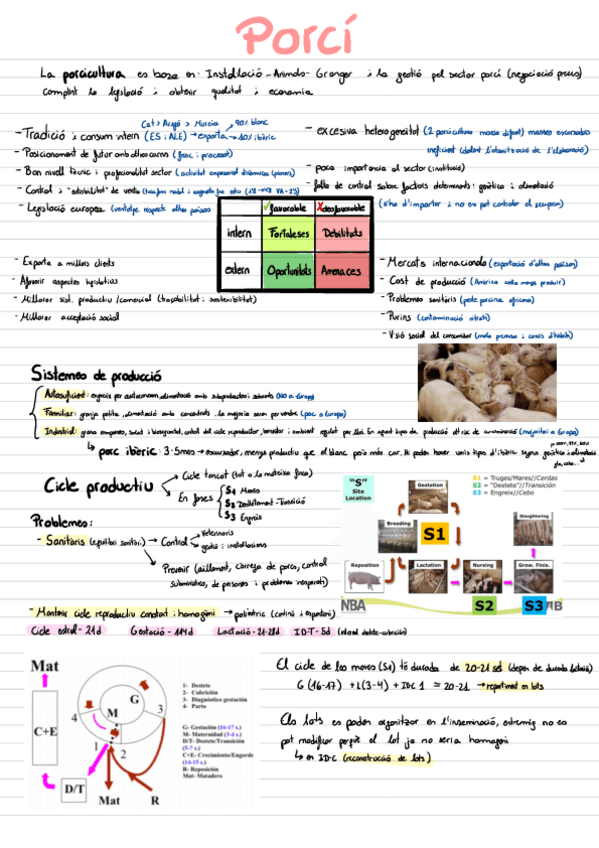 Porcí
La porcicultura es basa en: Instal·lació - Animals - Granger i la gestió pel sector porcí (negociació preus)
complint la legislació i obtenir qualitat i economia
Cat > Aragó > Murcia 90% blanc
- Tradició i consum intern (ES i ALE) → exporta → 10% ibèric
- Posicionament de futur amb altres carns (fresc i processat)
- Bon nivell tècnic i professionalitat sector (activitat empresarial dinàmica (pienso)
- Control i "estabilitat" de venta
- Legislació europea (ventatge respecte altres països
- excesiva heterogeneitat (2 porcicultura massa difent) masses escorxadors
ineficient (dolent l'
- poca importancia al sector (institució)
- falta de control sobre factors determinants: genètica i alimentació
(s'ha d'importar i no es pot controlar el
favorable
desfavorable
intern
Fortaleses
Debilitats
extern
Oportunitats
Amenaces
- Exporta a millors clients
- Afavorir aspectes legislatius
- Millorar sist. productiu / comercial (traçabilitat i sostenibilitat)
- Millorar acceptació social
- Mercats internacionals (exportació d'altres països)
- Cost de producció (Amèrica costa menys produir)
- Problemes sanitaris (peste porcina africana)
- Purins (contaminació nitrats)
- Visió social del consumidor (mala premsa i canvis d'hàbits)
Sistemes de producció
Autosuficient: engreix per autoconsum, alimentació amb subproductes i sobrants (NO a Europa)
Familiar: granja petita, alimentació amb concentrats. la majoria seran per vendre (poc a Europa)
Industrial: grans empreses, salut i bioseguretat, control del cicle reproductor, benestar i ambient regulat per llei. En aquest tipus de producció alt risc de contaminació (majoritari a Europa)
↳ porc ibèric: 3-5mesos → escorxador, menys productiu que el blanc però més car. Hi poden haver varis tipus d'ibèric segons genètica i alimentació
Cicle productiu
Cicle tancat (tot a la mateixa finca)
En fases
S1 Mares
S2 Deslletament - Transició
S3 Engreix
"S"
Site
Location
S1 = Truges/Mares//Cerdas
S2 = "Destete"//Transición
S3 = Engreix//Cebo
Gestation
Breeding
S1
Slaughtering
Reposition
Lactation
Nursing
Grow. Finis.
NBA
S2
S3
Problemes:
- Sanitaris (equilibri sanitari) → Control
Veterinaris
gestió i instal·lacions
Prevenir (aïllament, carrega de porcs, control
subministres, de persones i problemes inesperats)
- Mantenir cicle reproductiu constant i homogeni → polièstric (continu i espontani)
Cicle estral - 21d Gestació - 114d Lactació - 21-28d ID-T - 5d (interval deslete-cubrición)
Mat
C+E
D/T
G
M
1
2
3
4
Mat
R
1- Destete
2- Cubrición
3- Diagnóstico gestación
4- Parto
G- Gestación (16-17 s.)
M- Maternidad (3-4 s.)
D/T- Destete/Transición
(5-7 s.)
C+E- Crecimiento/Engorde
(14-15 s.)
R- Reposición
Mat- Matadero
El cicle de les mares (S1) té durada de 20-21 set (depen de durada lactació)
G (16-17) + L (3-4) + IDC 1 = 20-21 → repartiment en lots
Els lots es poden organitzar en l'inseminació, extremis no es
pot modificar perquè el lot ja no seria homogeni
↳ en IDC (reconstrucció de lots)